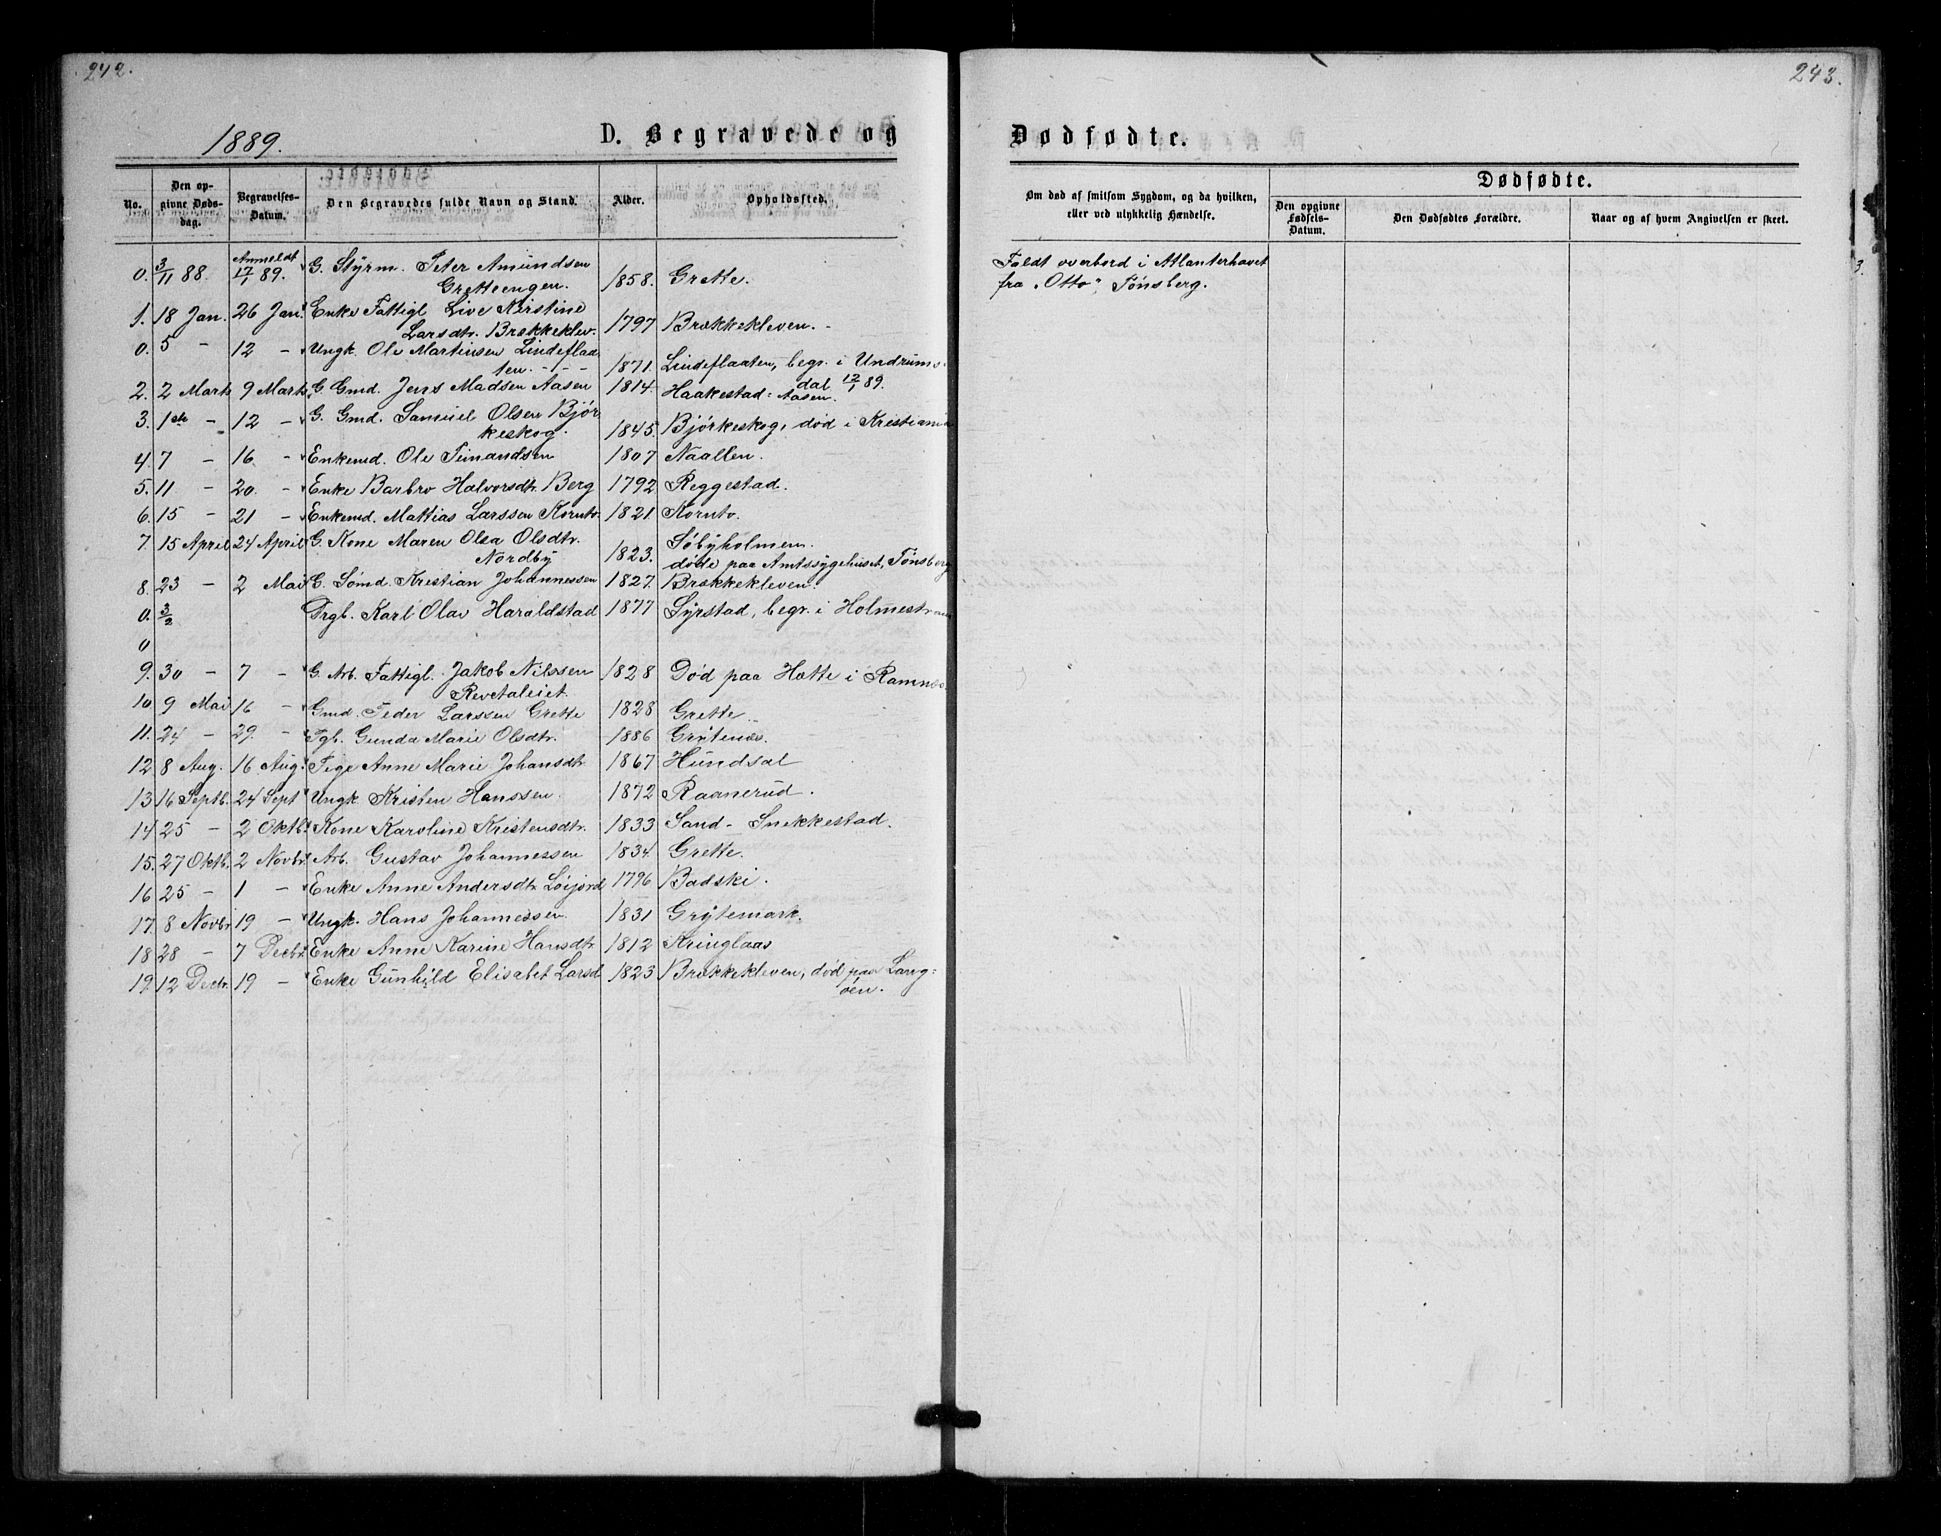 242.
1889.
D. Begravede og
No.
Den opgivne Dødsdag.
Begravelses-Datum.
Den Begravedes fulde Navn og Stand.
Alder.
Opholdssted.
0. 3/11 88. Anmeldt 17/1 89. G. Styrm. Peter Amundsen 1858. Grette.
Gretteengen.
1. 18 Jan. 26 Jan. Enke Fattigl. Live Kirstine
Larsdtr. Brækkeklev. 1797 Brækkekleven.
0. 5 - 12 - Ungk. Ole Martinsen Lindeflaa-
ten. - - - 1871. Lindeflaaten, begr. i Undrums-
dal 12/1 89.
2. 2 Marts 9 Marts G. Gmd. Jens Madsen Aasen 1814. Haakestad-Aasen.
3. 1ste - 12 - G. Gmd. Samuel Olsen Bjør-
keskog. 1845. Bjørkeskog, død i Kristiania
4. 7 - 16 - Enkemd. Ole 1807
5. 11 - 20. - Enke Barbro Halvorsdtr. Berg 1792 Reggestad.
6. 15 - 21 - Enkemd. Mattias Larssen Kornto. 1821 Kornto.
7 15 April 24 April G. Kone Maren Olea Olsdtr.
Nordby 1823. Søbyholmen.
døde paa Amtssygehuset, Tønsberg
8. 23 - 2 Mai G. Sømd. Kristian Johannessen 1827. Brækkekleven.
0. 3/2 Drgb. Karl Olav Haraldstad 1877 Syrstad, begr. i Holmestrand
0
9. 30 - 7 - G. Arb. Fattigl. Jakob Nilssen 1828 Død paa Hotte i Ramnes.
Revetaleiet.
10 9 Mai 16 - Gmd. Peder Larssen Grette 1828 Grette.
11. 24 - 29. - Pgb. Gunda Marie Olsdtr. 1886 Grytenæs.
12 8 Aug. 16 Aug. Pige Anne Marie Johansdtr 1867 Hundsal
13 16 Septb. 24 Sept Ungk. Kristen Hanssen. 1872 Raanerud.
14 25 - 2 Oktb. Kone Karoline Kristensdtr. 1833 Sand - Snekkestad.
15. 27 Oktb. 2 Novbr. Arb. Gustav Johannessen 1834 Grette.
16 25 - 1 - Enke Anne Andersdtr. Løijord 1796 Badski.
17. 8 Novbr 19 - Ungk. Hans Johannessen. 1831 Grytemark.
18 28 - 7 Decbr. Enke Anne Karine Hansdtr 1812 Kringlaas
19. 12 Decbr. 19 - Enke Gunhild Elisabet Larsd 1823 Brækkekleven, død paa Lang-
øen.
243.
Dødfødte.
Om død af smitsom Sygdom, og da hvilken,
eller ved ulykkelig Hændelse.
Dødfødte.
Den opgivne Fødsels-Datum.
Den Dødfødtes Forældre.
Naar og af hvem Angivelsen er skeet.
Faldt overbord i Atlanterhavet
fra "Otto", Tønsberg.
3.